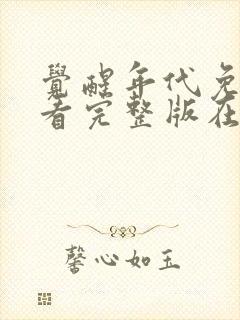 覺醒年代免
看完整版在
馨心如玉